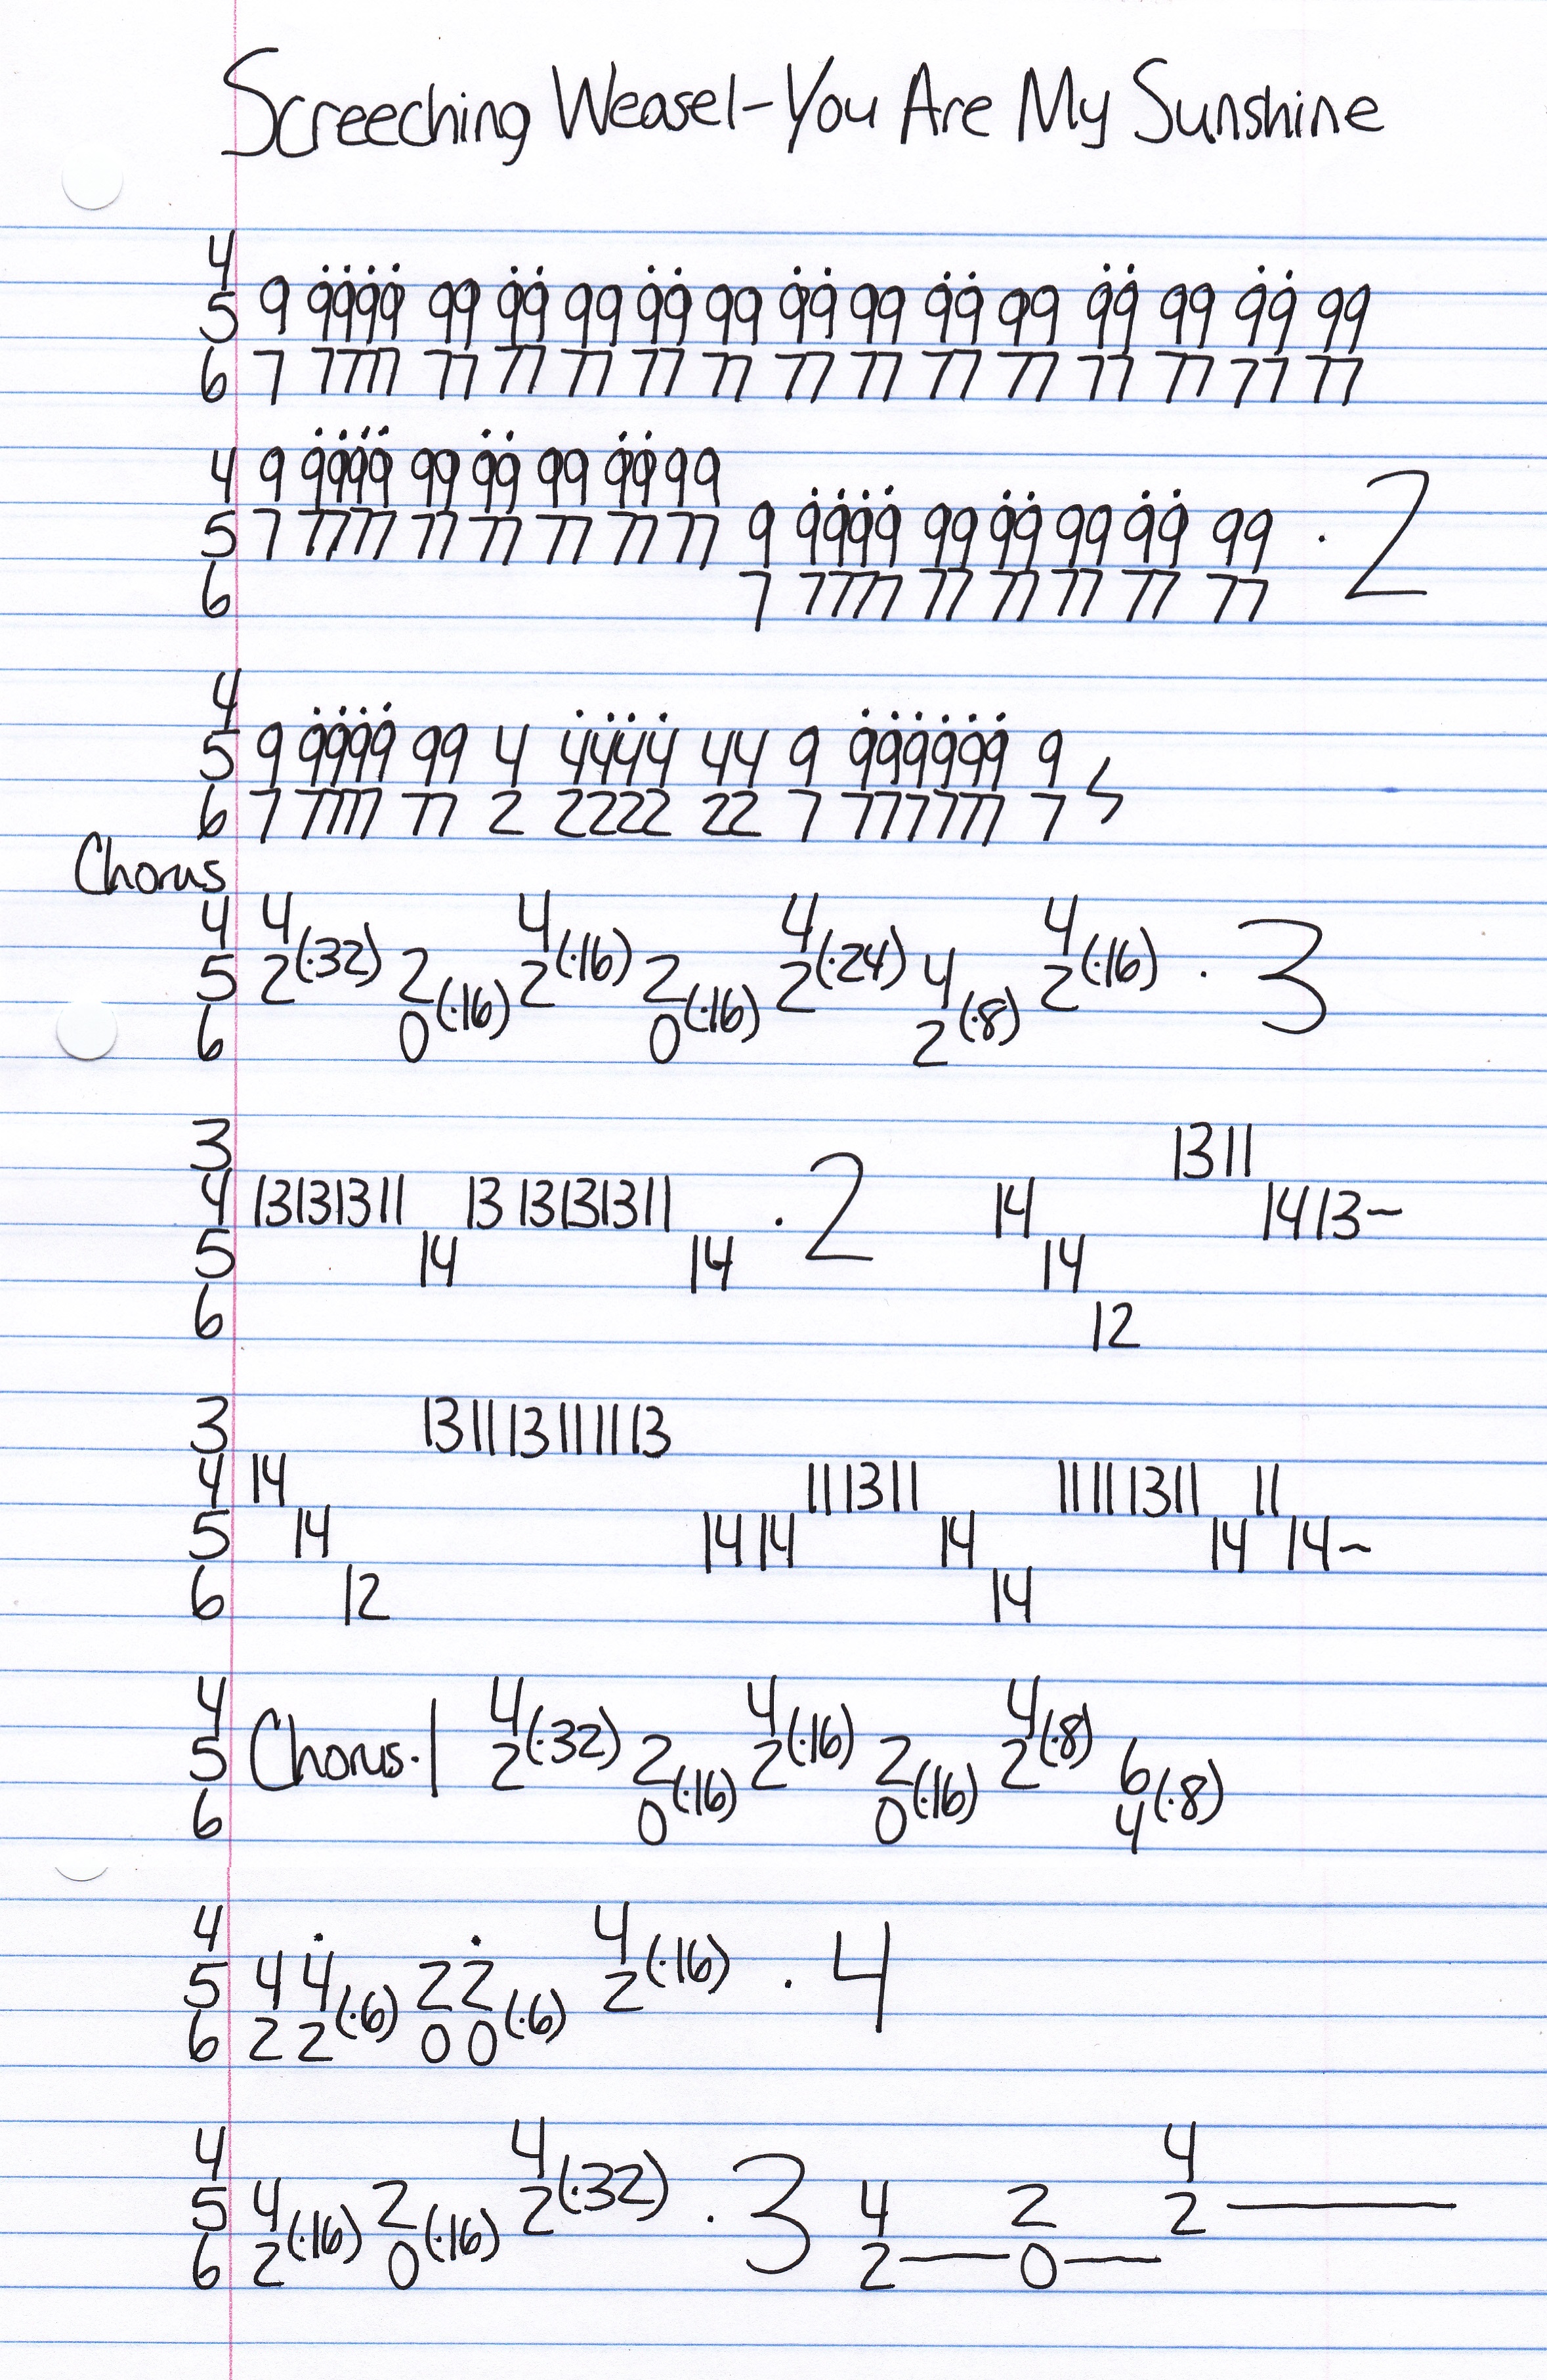 Screeching Weasel-You Are My Sunshine
4
5 9 9999 99 99 99 99 99 99 99 99 99 99 99 99 99
6 7 7777 77 77 77 77 77 77 77 77 77 77 77 77 77
4 9 9999 99 99 99 99 99
5 7 7777 77 77 77 77 77 9 9999 99 99 99 99 99 · 2
6 7 7777 77 77 77 77 77
4
5 9 9999 99 4 4444 44 9 999999 9
6 7 7777 77 2 2222 22 7 777777 7
Chorus
4 4 4 4 4
5 2(·32) 2 2(·16) 2 2(·24) 4 2(·16) · 3
6 0(·16) 0(·16) 2(·8)
3 13 11
4 13131311 13 13131311 · 2 14 14 13~
5 14 14 14
6 12
3 13 11 13 11 11 13
4 14 11 13 11 11 11 13 11 11
5 14 14 14 14 14 14~
6 12 14
4 4 4 4
5 Chorus·1 2(·32) 2 2(·16) 2 2(·8) 6
6 0(·16) 0(·16) 4(·8)
4 4
5 4 4 2 2 2(·16) · 4
6 2 2(·6) 0 0(·6)
4 4 4
5 4 2 2(·32) · 3 4 2 2—
6 2(·16) 0(·16) 2—0—